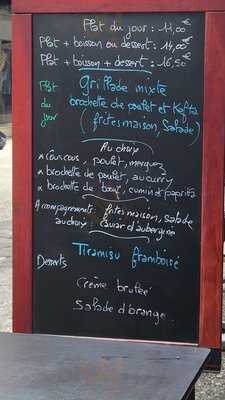 Plat du jour : 11,00€
Plat + boisson ou dessert : 14,00€
Plat + boisson + dessert : 16,50€
Plat du jour
Grillade mixte
brochette de poulet et Kefta
(frites maison, Salade)
Au choix
* Couscous, poulet, merguez
* brochette de poulet, au curry
* brochette de bœuf, cumin et paprika
Accompagnements au choix
frites maison, salade
caviar d'aubergine
Desserts
Tiramisu framboise
Crème brulée
Salade d'orange